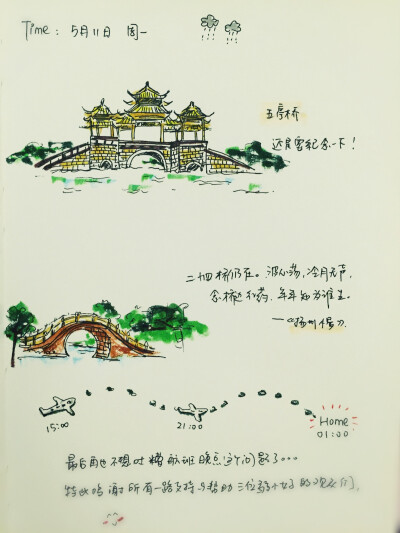 Time: 5月11日 周一
五亭桥
还是要纪念一下!
二十四桥仍在。波心荡,冷月无声,
念桥边红药,年年知为谁生。
——《扬州慢》
15:00
21:00
Home
01:00
最后再也不想吐槽航班晚点这个问题了…
特此鸣谢所有一路支持与帮助三位 的 们.